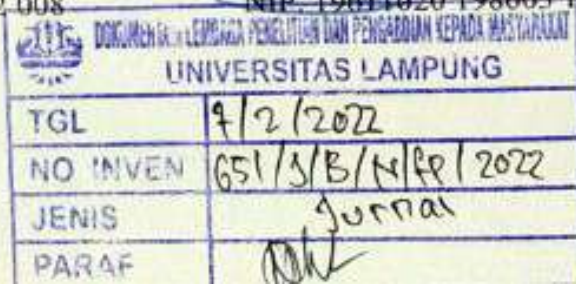 008 NIP. 19611020 198603 1
DOKUMENTASI LEMBAGA PENELITIAN DAN PENGABDIAN KEPADA MASYARAKAT
UNIVERSITAS LAMPUNG
TGL 7/2/2022
NO INVEN 651/J/B/N/FP/2022
JENIS Jurnal
PARAF